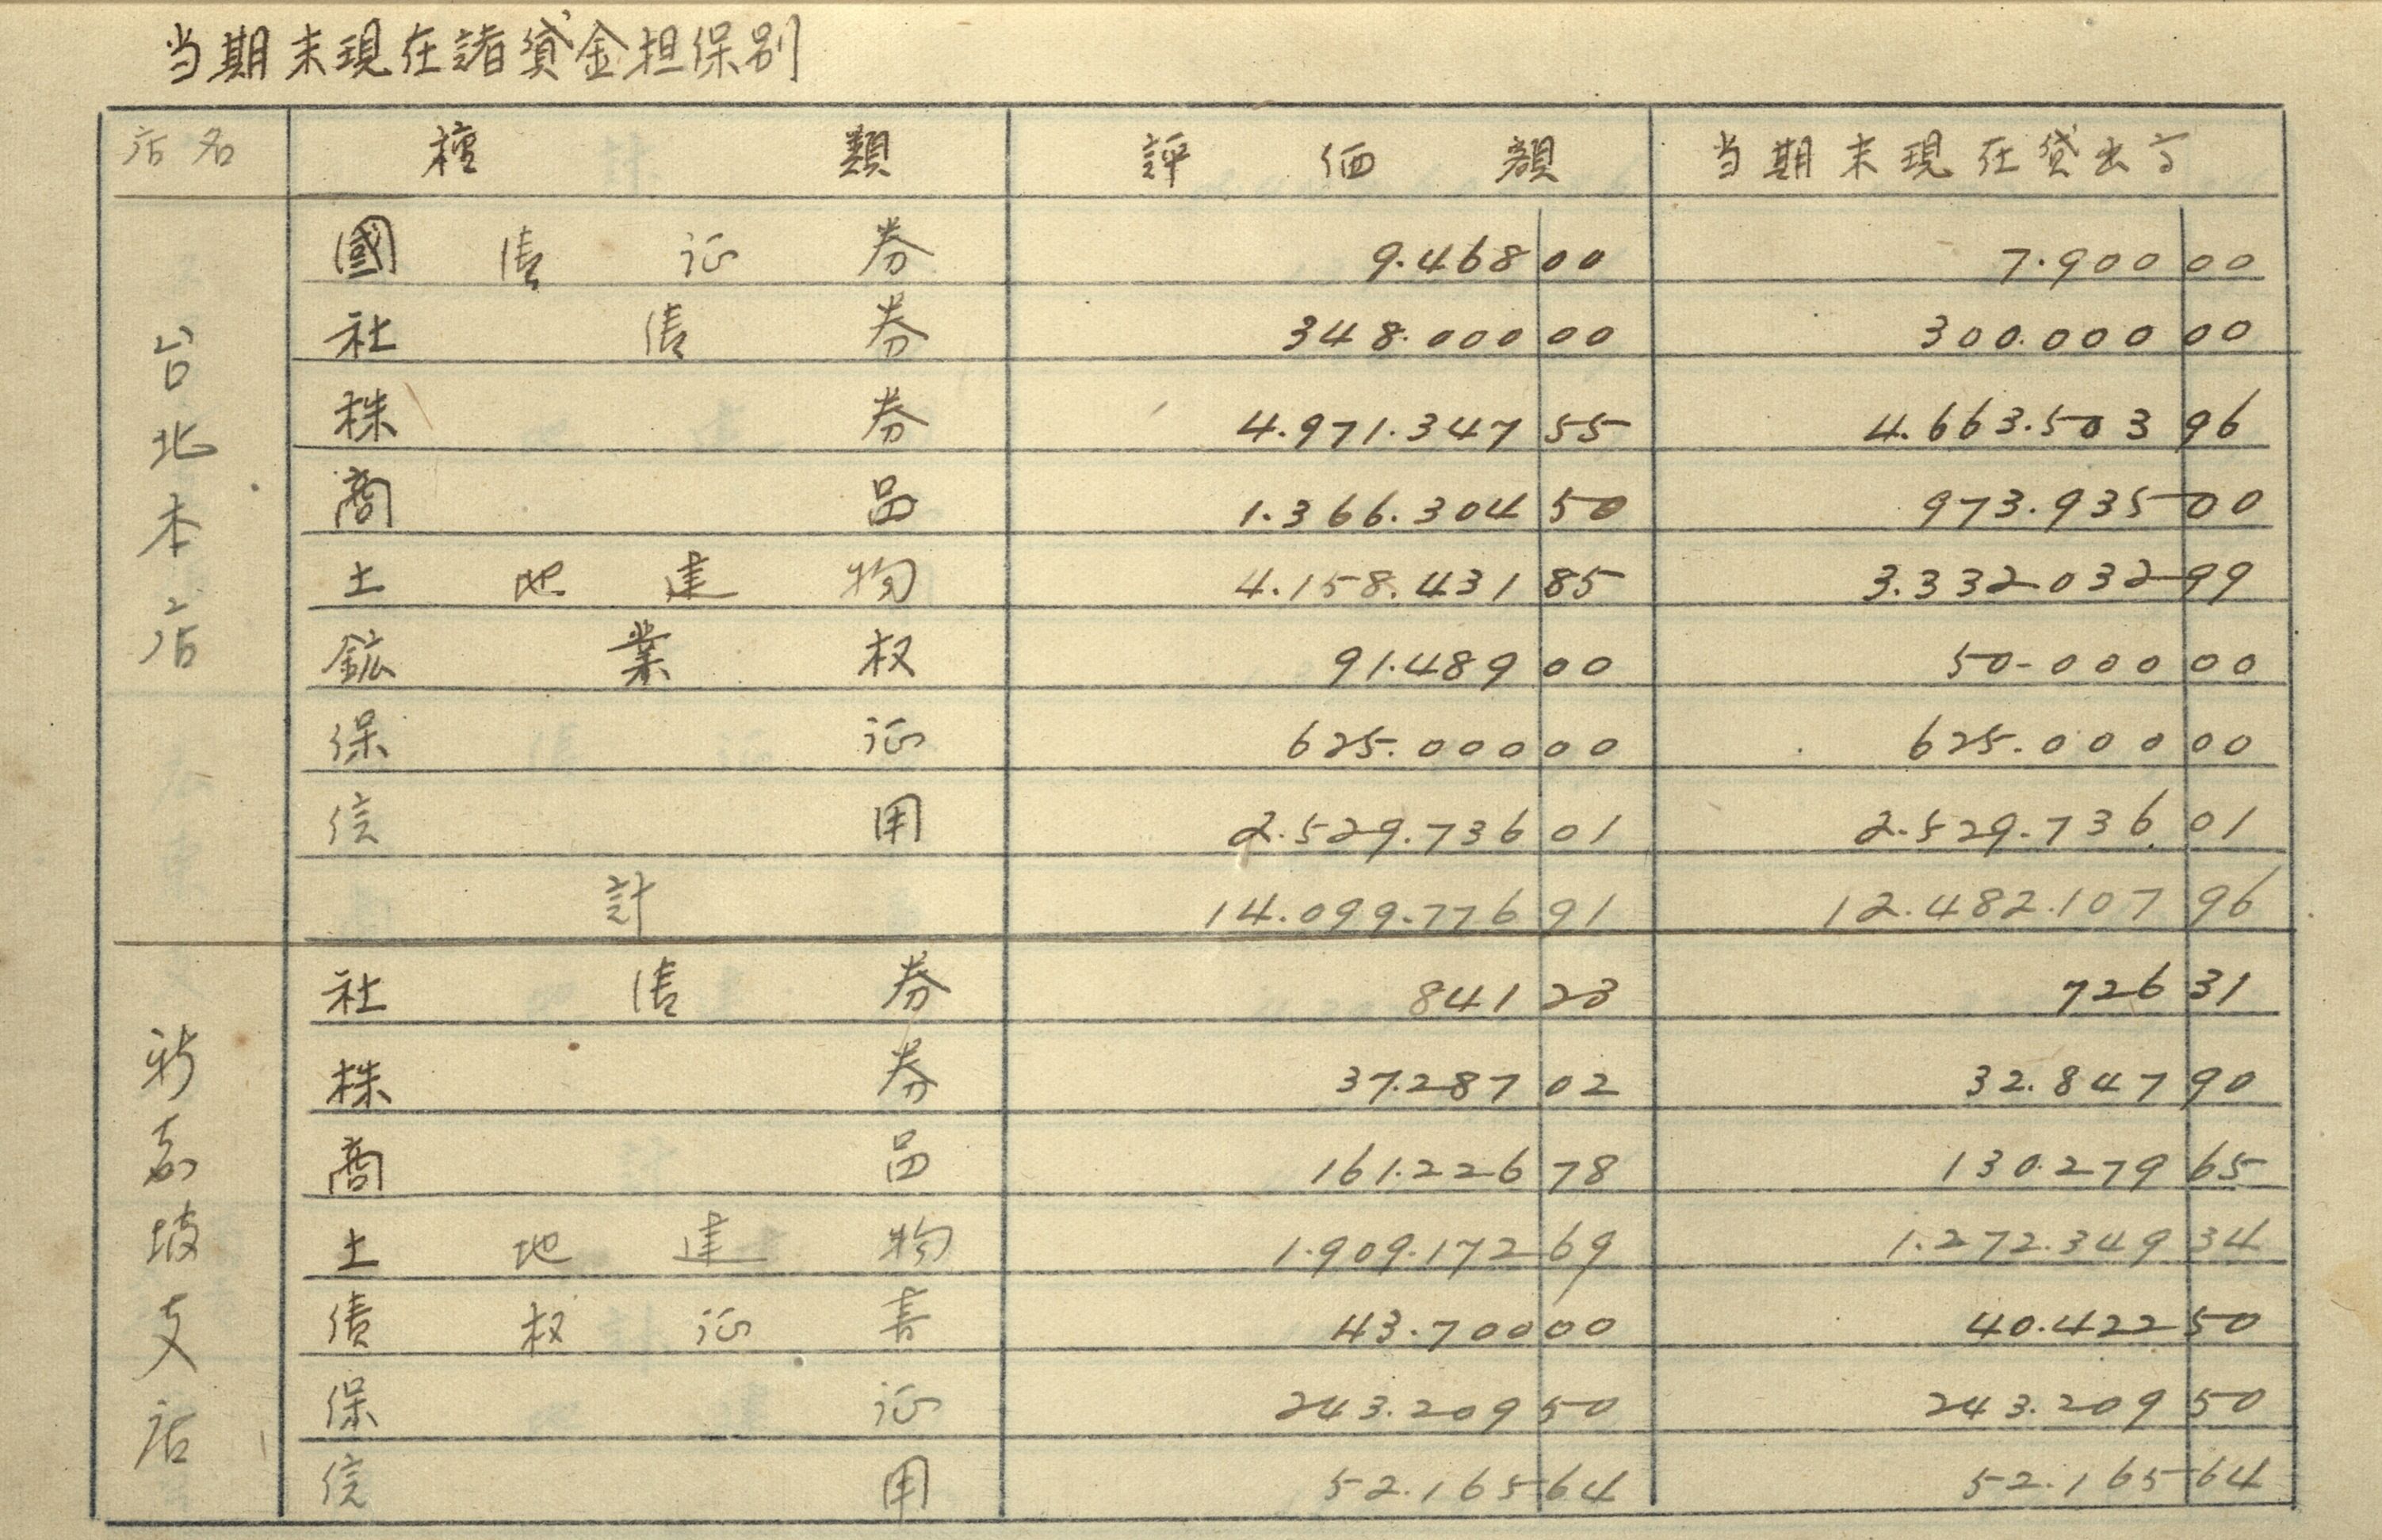 当期末現在諸貸金担保別
店名 種類 評価額 当期末現在貸出高
台北本店
國債証券 9.468 00 7.900 00
社債券 348.000 00 300.000 00
株券 4.971.347 55 4.663.503 96
商品 1.366.304 50 973.935 00
土地建物 4.158.431 85 3.332032 99
鉱業权 91.489 00 50-000 00
保証 625.000 00 625.000 00
信用 2.529.736 01 2.529.736 01
計 14.099.776 91 12.482.107 96
新嘉坡支店
社債券 841 23 726 31
株券 37.287 02 32.847 90
商品 161.226 78 130.279 65
土地建物 1.909.172 69 1.272.349 34
債权証書 43.700 00 40.422 50
保証 243.209 50 243.209 50
信用 52.165 64 52.165 64